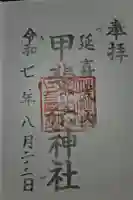 奉拝
延喜式内
甲斐奈神社
令和七年八月二十二日